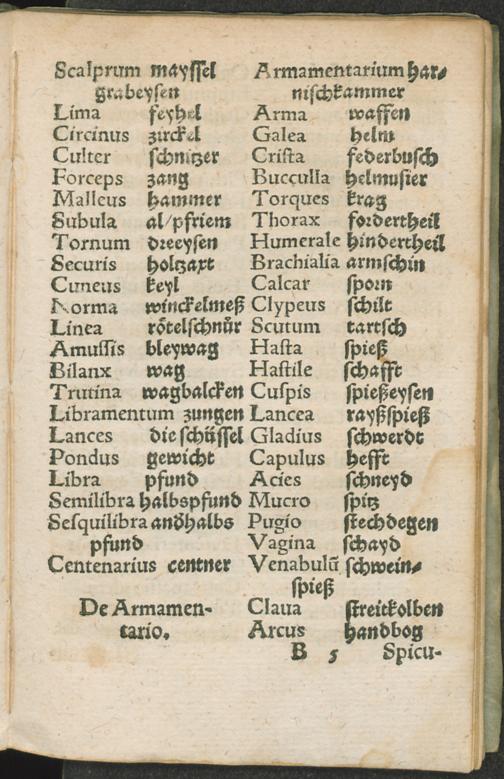 Scalprum mayssel
grabeysen
Lima feyhel
Circinus zirckel
Culter schnitzer
Forceps zang
Malleus hammer
Subula al/pfriem
Tornum dreeysen
Securis holtzaxt
Cuneus keyl
Norma winckelmeß
Linea rötelschnür
Amussis bleywag
Bilanx wag
Trutina wagbalcken
Libramentum zungen
Lances die schüssel
Pondus gewicht
Libra pfund
Semilibra halbspfund
Sesquilibra andhalbs
pfund
Centenarius centner
De Armamen-
tario.
Armamentarium har-
nischkammer
Arma waffen
Galea helm
Crista federbusch
Bucculla helmusier
Torques krag
Thorax fordertheil
Humerale hindertheil
Brachialia armschin
Calcar sporn
Clypeus schilt
Scutum tartsch
Hasta spieß
Hastile schafft
Cuspis spießeysen
Lancea rayßspieß
Gladius schwerdt
Capulus hefft
Acies schneyd
Mucro spitz
Pugio stechdegen
Vagina schayd
Venabulũ schwein-
spieß
Claua streitkolben
Arcus handbog
B 5 Spicu-